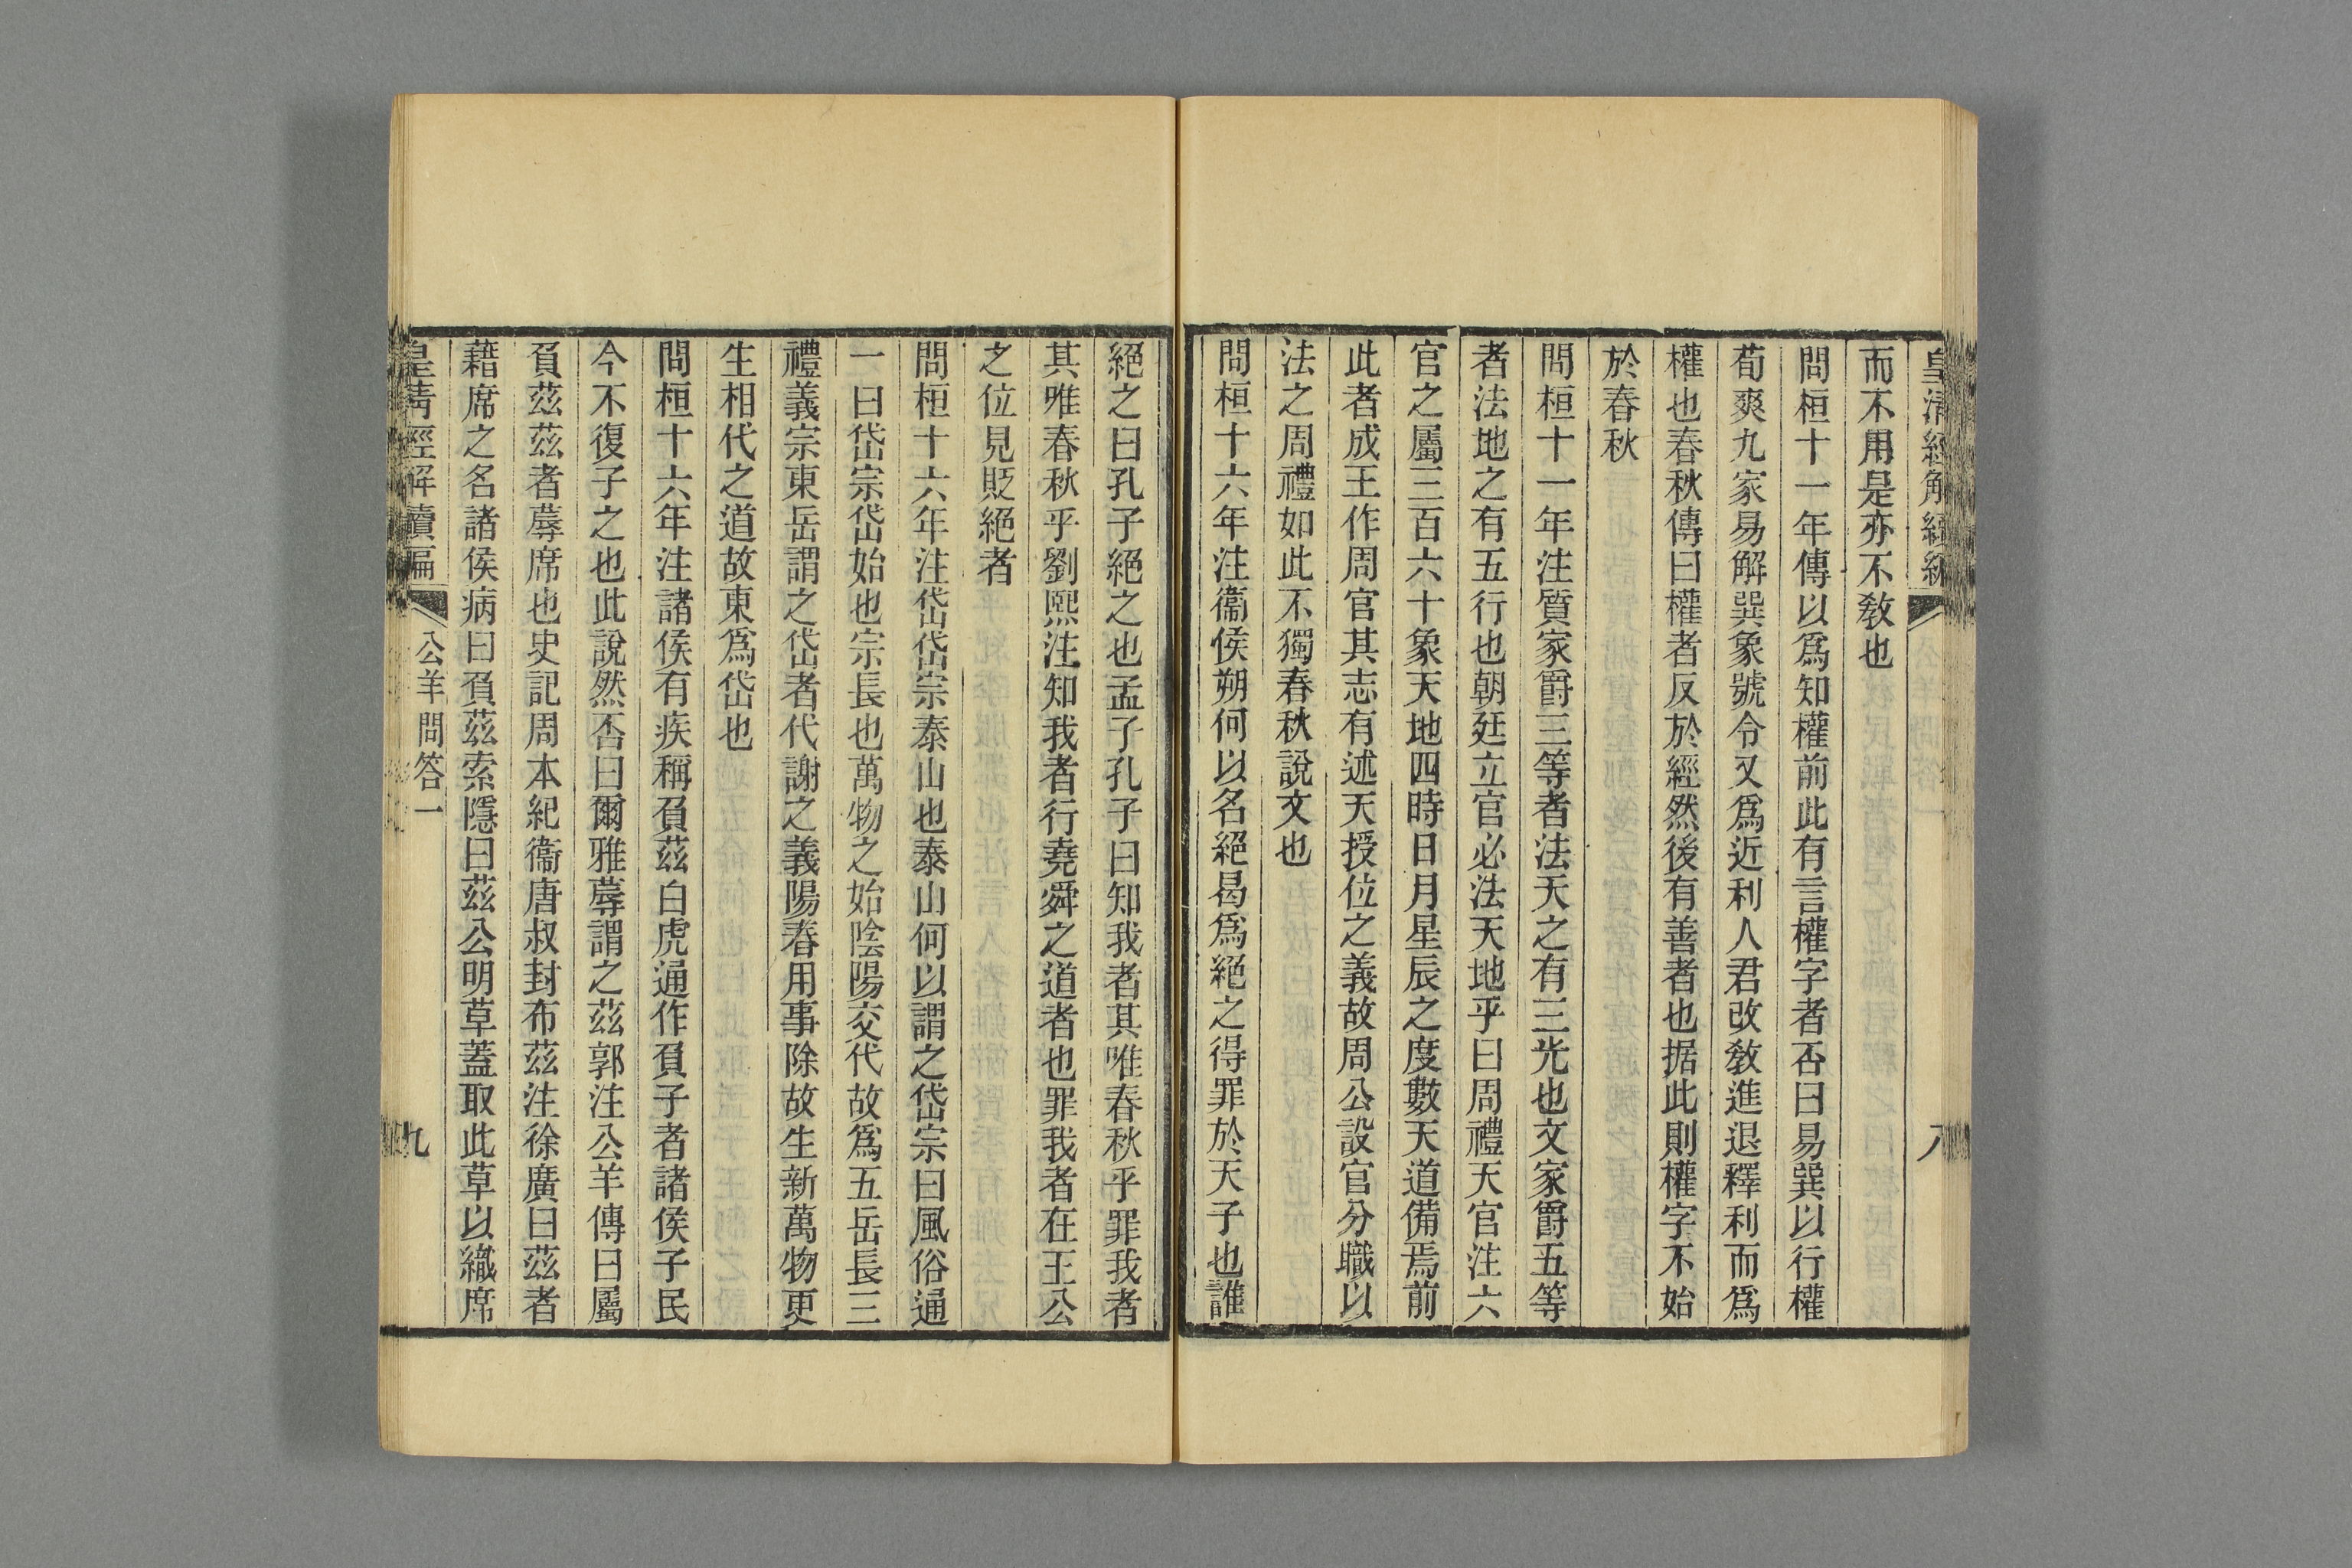 皇清經解續編
八
而不用是亦不敎也
問桓十一年傳以爲知權前此有言權字者否曰易巽以行權
荀爽九家易解巽象號令又爲近利人君改敎進退釋利而爲
權也春秋傳曰權者反於經然後有善者也据此則權字不始
於春秋
問桓十一年注質家爵三等者法天之有三光也文家爵五等
者法地之有五行也朝廷立官必法天地乎曰周禮天官注六
官之屬三百六十象天地四時日月星辰之度數天道備焉前
此者成王作周官其志有述天授位之義故周公設官分職以
法之周禮如此不獨春秋說文也
問桓十六年注衞侯朔何以名絕曷爲絕之得罪於天子也誰
絕之曰孔子絕之也孟子孔子曰知我者其唯春秋乎罪我者
其唯春秋乎劉熙注知我者行堯舜之道者也罪我者在王公
之位見貶絕者
問桓十六年注岱岱宗泰山也泰山何以謂之岱宗曰風俗通
一曰岱宗岱始也宗長也萬物之始陰陽交代故爲五岳長三
禮義宗東岳謂之岱者代謝之義陽春用事除故生新萬物更
生相代之道故東爲岱也
問桓十六年注諸侯有疾稱負茲白虎通作負子者諸侯子民
今不復子之也此說然否曰爾雅蓐謂之茲郭注公羊傳曰屬
負茲茲者蓐席也史記周本紀衞唐叔封布茲注徐廣曰茲者
藉席之名諸侯病曰負茲索隱曰茲公明草蓋取此草以織席
皇淸經解續編
公羊問答一
九